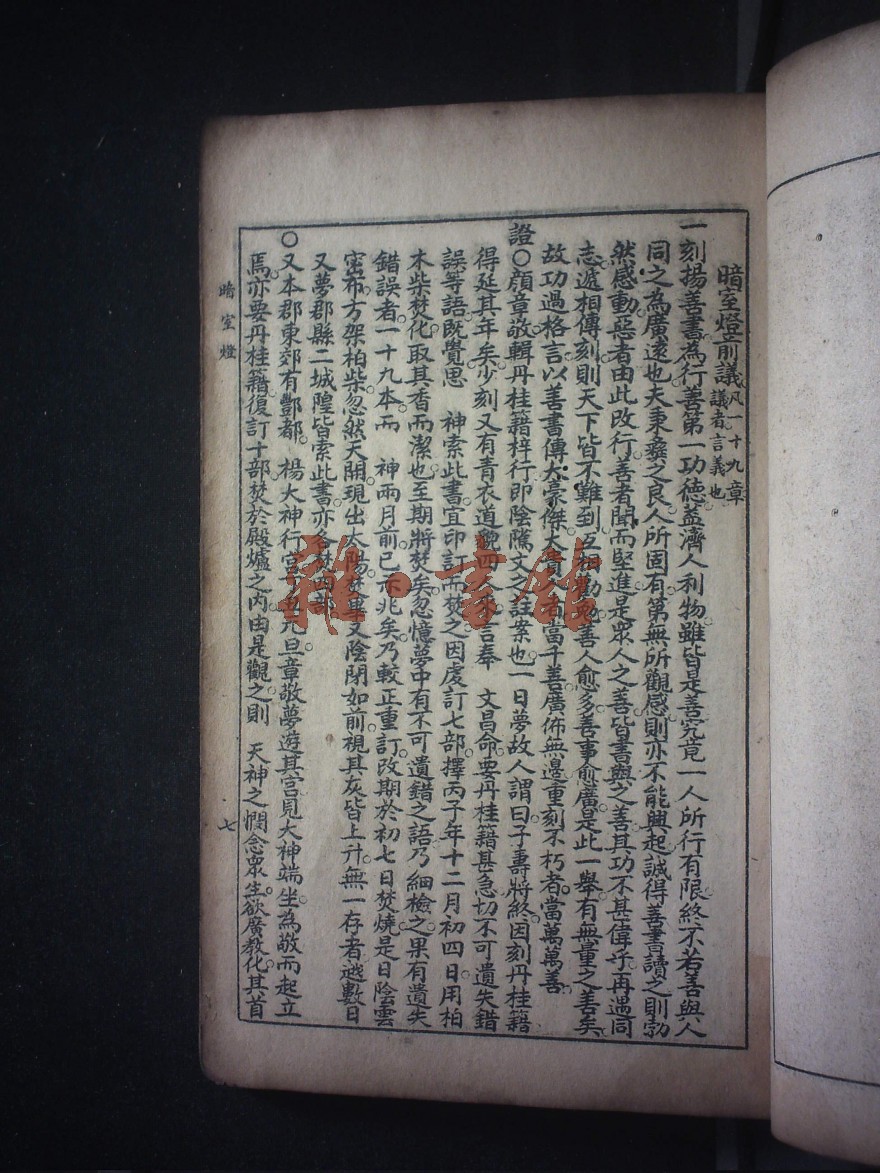 暗室燈前議凡一十九章議者言義也
一刻揚善書為行善第一功德蓋濟人利物雖皆是善究竟一人所行有限終不若善與人
同之為廣遠也夫秉彝之良人所固有第無所觀感則亦不能興起誠得善書讀之則勃
然感動惡者由此改行善者聞而堅進是衆人之善皆書與之善其功不甚偉乎再遇同
志遞相傳刻則天下皆不難到互相勸勉善人愈多善事愈廣是此一舉有無量之善矣
故功過格言以善書傳大豪傑大貴人者當千善廣佈無邊重刻不朽者當萬萬善
證○顏章敬輯丹桂籍梓行即陰隲文之註案也一日夢故人謂曰子壽將終因刻丹桂籍
得延其年矣少刻又有青衣道貌四人來言奉 文昌命要丹桂籍甚急切不可遺失錯
誤等語既覺思 神索此書宜印訂而焚之因虔訂七部擇丙子年十二月初四日用柏
木柴焚化取其香而潔也至期將焚矣忽憶夢中有不可遺錯之語乃細檢之果有遺失
錯誤者一十九本而 神兩月前已示兆矣乃較正重訂改期於初七日焚燒是日陰雲
密布方架柏柴忽然天開現出太陽焚畢又陰閉如前視其灰皆上升無一存者越數日
又夢郡縣二城隍皆索此書亦各焚四部
○又本郡東郊有酆都 楊大神行宮 元旦章敬夢遊其宮見大神端坐為敬而起立
焉亦要丹桂籍復訂十部焚於殿爐之內由是觀之則 天神之憫念衆生欲廣教化其首
暗室燈
七
雅·書館